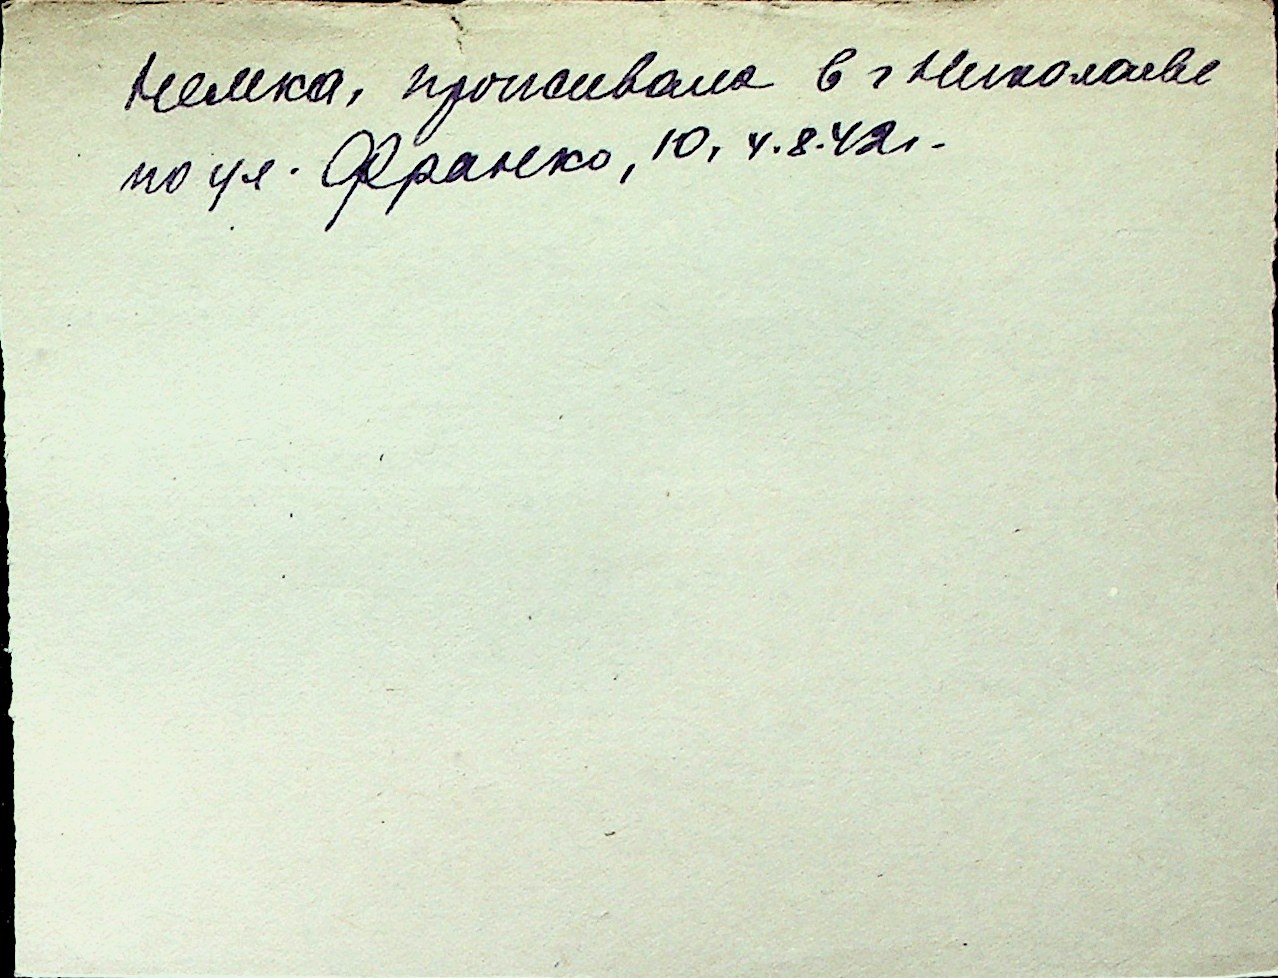 Немка, проживала в г Николаеве
по ул. Франко, 10, 4.8.42г.